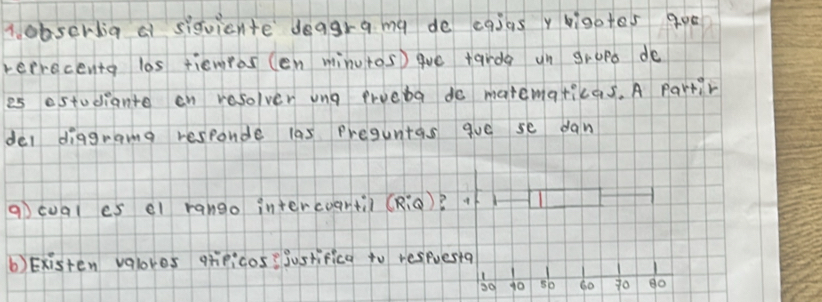 1. observa el siguiente deagrama de cajas y bigotes que
reprecenta los tiempos (en minutos) que tarda un grupo de
25 estudiante en resolver una prueba de matematicas. A partir
del diagrama responde las preguntas que se dan
a) cual es el rango intercuartil (RiQ)?
b) Existen valores atipicos? justifica tu respuesta
30 40 50 60 70 80